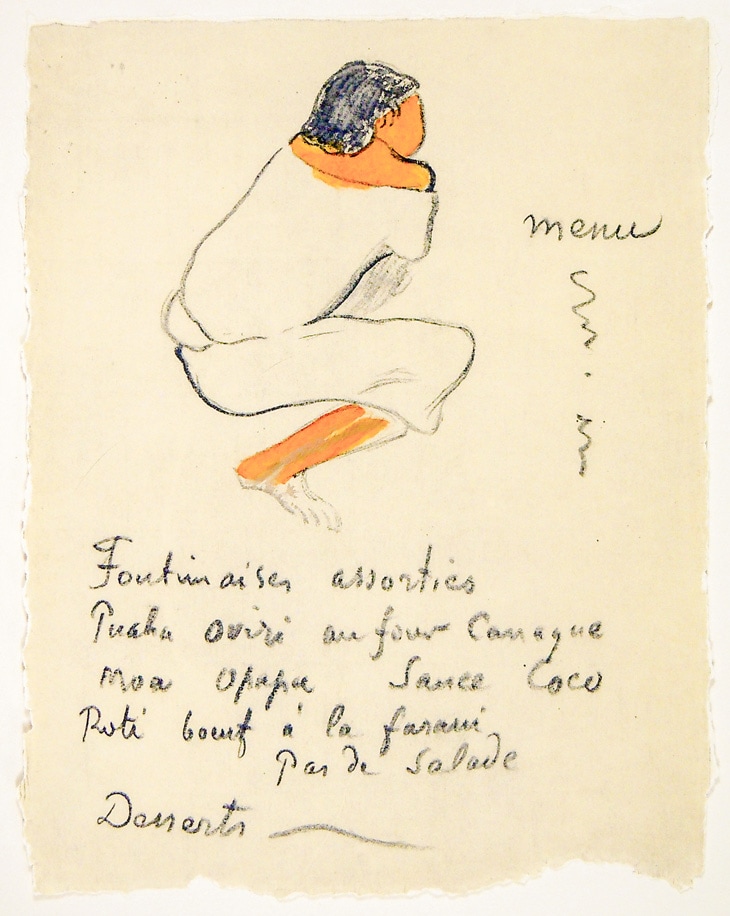 menu
Fontinaises assorties
Puaka oviri au four Canaque
moa Opapa Sauce Coco
Roti boeuf à la farani
Pas de Salade
Desserts